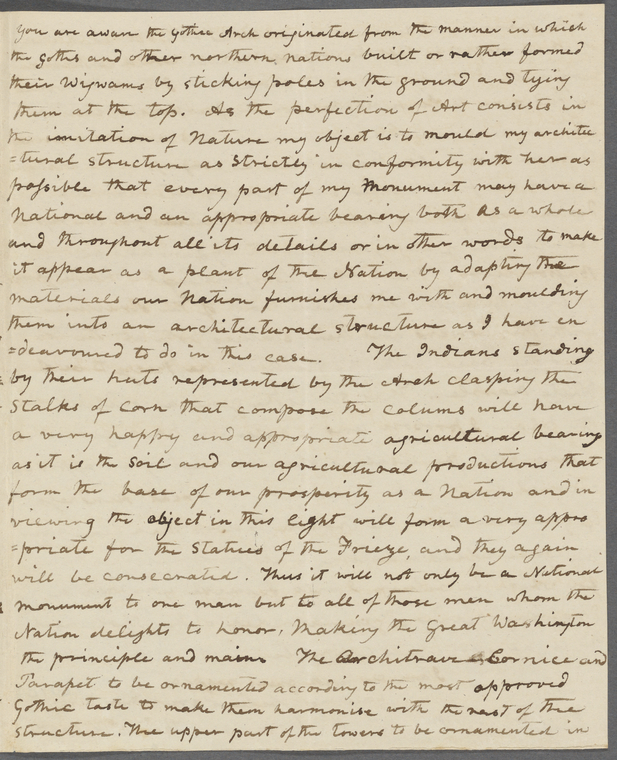 You are aware the Gothic Arch originated from the manner in which
the goths and other northern nations built or rather formed
their Wigwams by sticking poles in the ground and tying
them at the top. As the perfection of Art consists in
the imitation of Nature my object is to mould my archite
=tural structure as Strictly in conformity with her as
possible that every part of my Monument may have a
National and an appropriate bearing both as a whole
and throughout all its details or in other words to make
it appear as a plant of the Nation by adapting the
materials our Nation furnishes me with and moulding
them into an architectural structure as I have en
=deavoured to do in this case. The Indians standing
by their huts represented by the Arch clasping the
Stalks of Corn that compose the Colums will have
a very happy and appropriate agricultural bearing
as it is the soil and our agricultural productions that
form the base of our prosperity as a Nation and in
viewing the object in this light will form a very appro
=priate for the Statues of the Frieze, and they again
will be consecrated. Thus it will not only be a National
monument to one man but to all of those men whom the
Nation delights to honor, Making the Great Washington
the principle and main The Architrave Cornice and
Parapet to be ornamented according to the most approved
Gothic taste to make them harmonise with the rest of the
structure. The upper part of the towers to be ornamented in